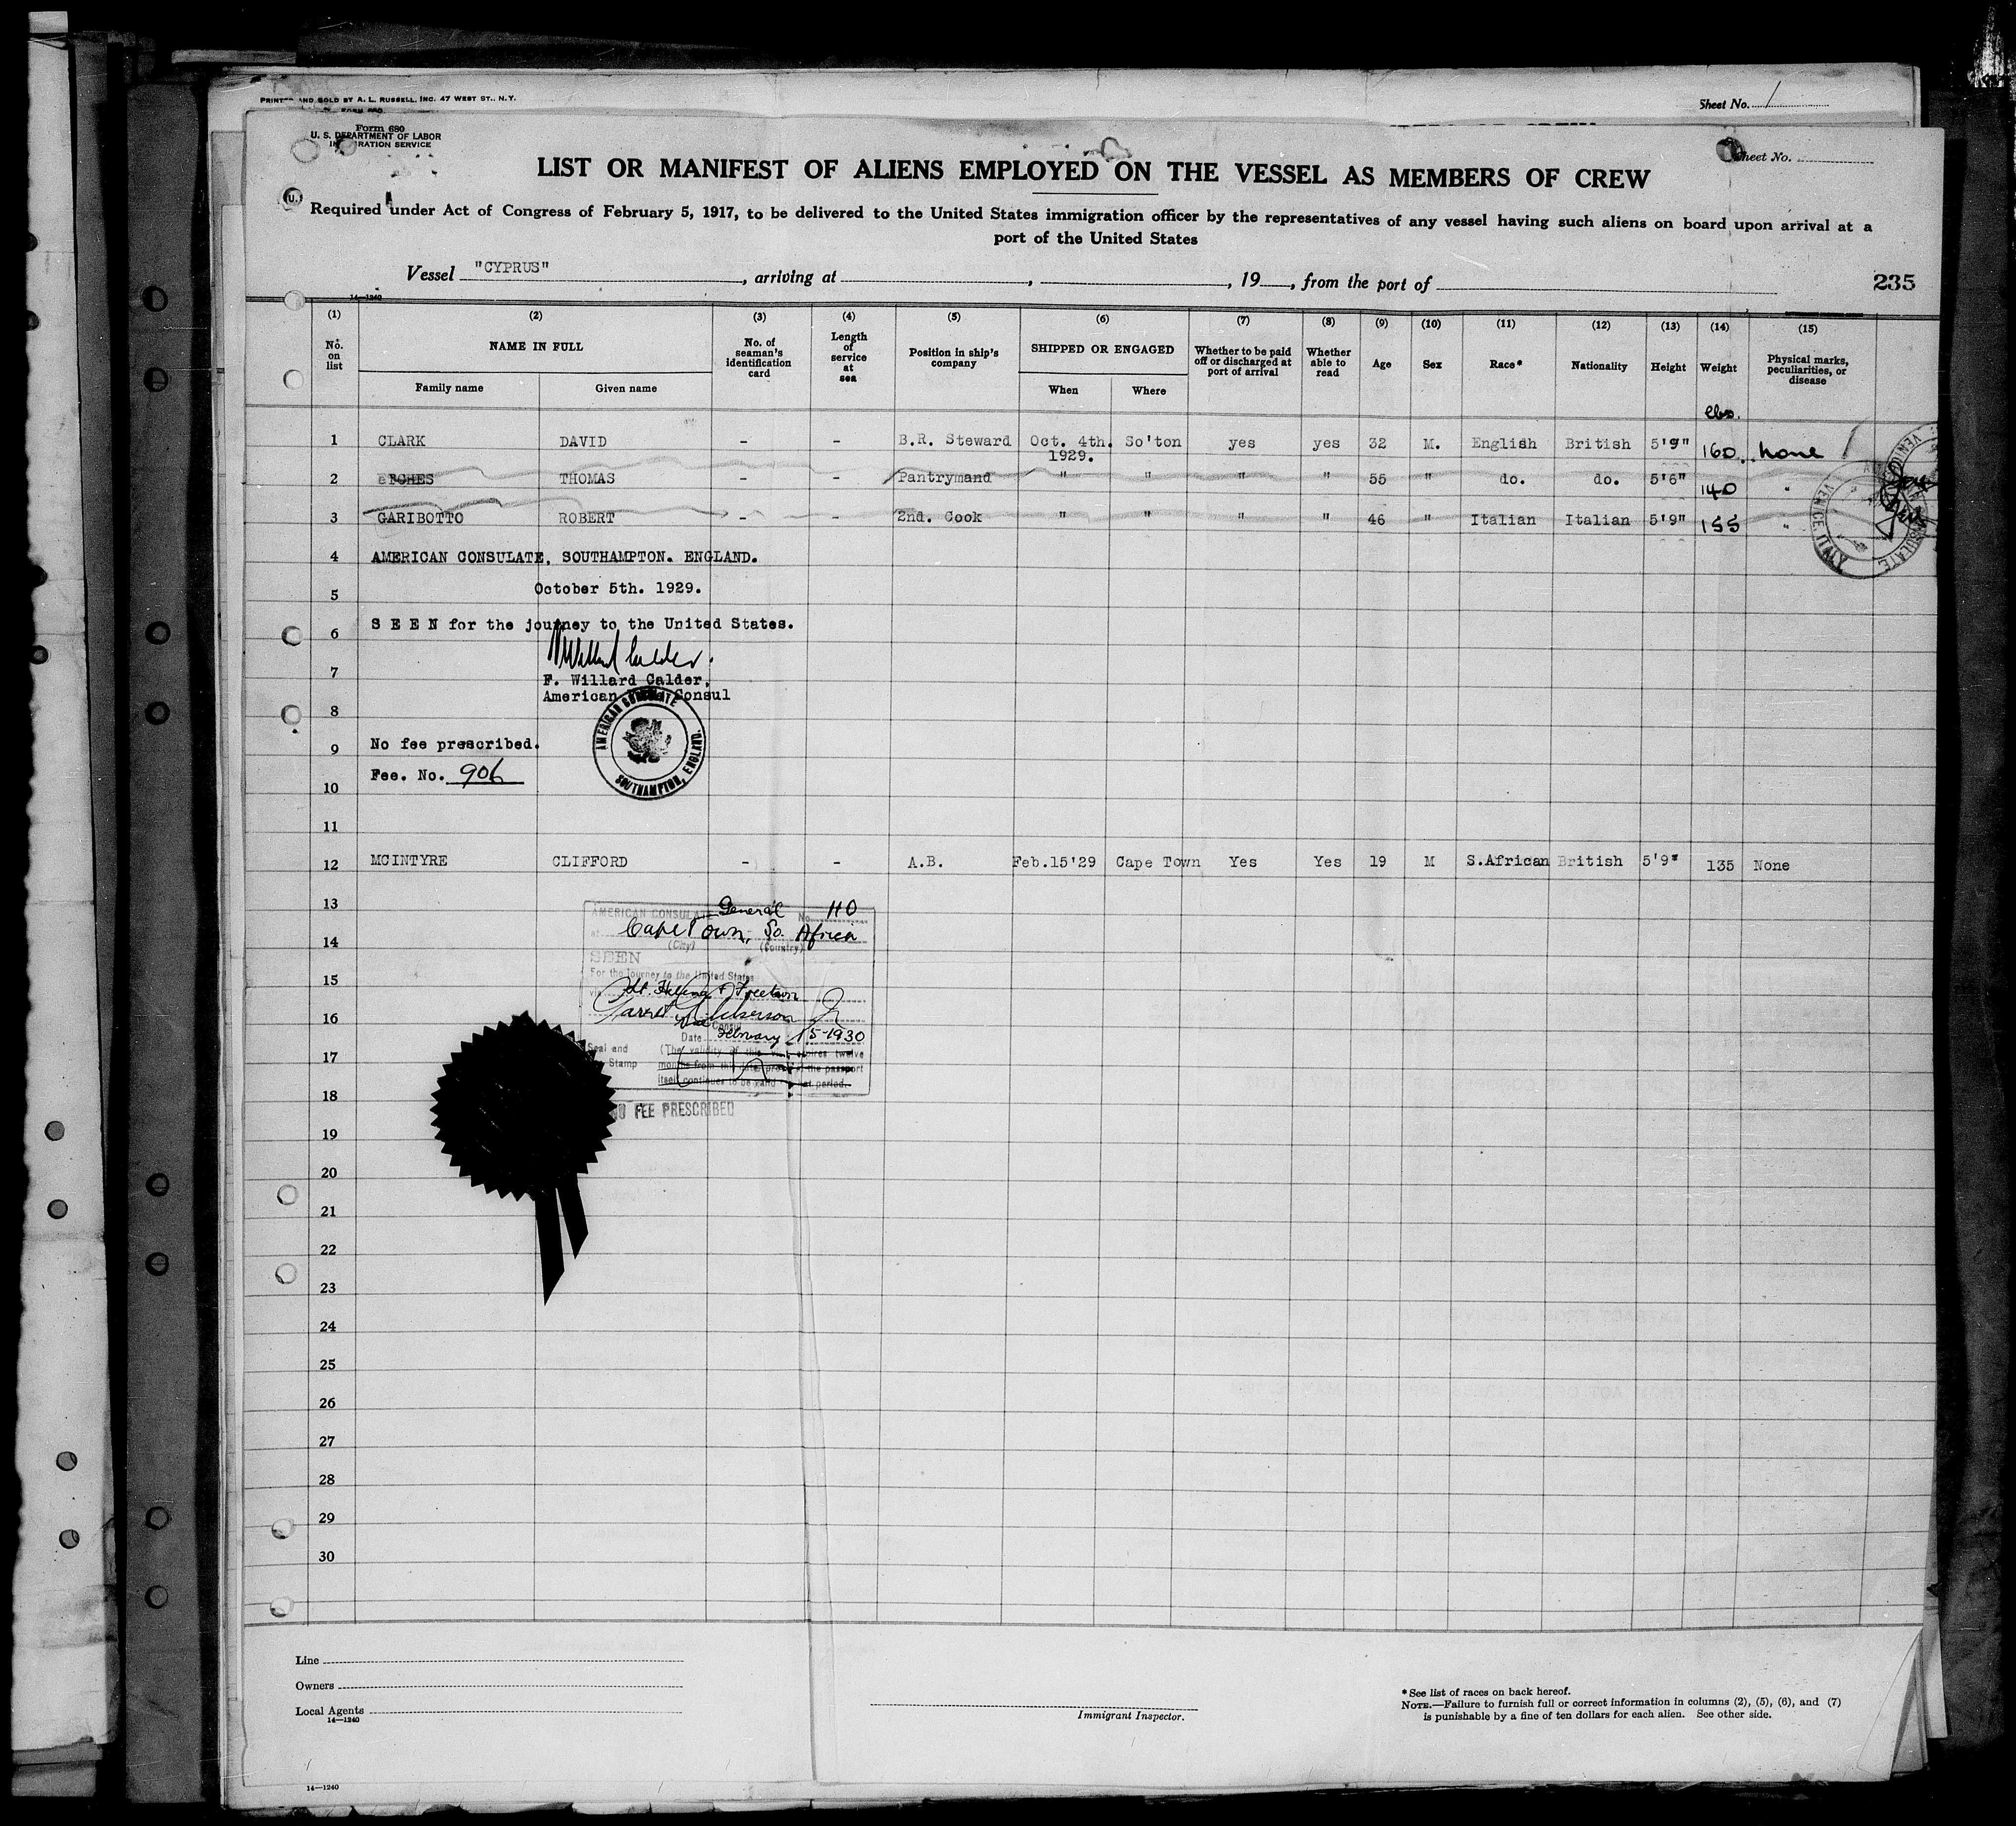 PRINTED AND SOLD BY A. L. RUSSELL, INC. 47 WEST ST., N.Y.
Sheet No. 1
Form 680
U. S. DEPARTMENT OF LABOR
IMMIGRATION SERVICE
Sheet No.
LIST OR MANIFEST OF ALIENS EMPLOYED ON THE VESSEL AS MEMBERS OF CREW
Required under Act of Congress of February 5, 1917, to be delivered to the United States immigration officer by the representatives of any vessel having such aliens on board upon arrival at a
port of the United States
Vessel "CYPRUS", arriving at , , 19 , from the port of
235
14—1240
(1) (2) (3) (4) (5) (6) (7) (8) (9) (10) (11) (12) (13) (14) (15)
No. on list
NAME IN FULL
Family name Given name
No. of seaman's identification card
Length of service at sea
Position in ship's company
SHIPPED OR ENGAGED
When Where
Whether to be paid off or discharged at port of arrival
Whether able to read
Age
Sex
Race*
Nationality
Height
Weight
Physical marks, peculiarities, or disease
lbs.
1 CLARK DAVID - - B.R. Steward Oct. 4th. 1929. So'ton yes yes 32 M. English British 5'9" 160 None
2 THOMAS - - Pantrymand " " " " 55 " do. do. 5'6" 140 "
3 GARIBOTTO ROBERT - - 2nd. Cook " " " " 46 " Italian Italian 5'9" 155 "
4 AMERICAN CONSULATE, SOUTHAMPTON. ENGLAND.
5 October 5th. 1929.
6 S E E N for the journey to the United States.
7 F. Willard Calder,
American Vice Consul
8
AMERICAN CONSULATE SOUTHAMPTON, ENGLAND.
9 No fee prescribed.
Fee. No. 906
10
11
12 MCINTYRE CLIFFORD - - A.B. Feb.15'29 Cape Town Yes Yes 19 M S.African British 5'9" 135 None
13 AMERICAN CONSULATE General No. 110
at Cape Town, So. Africa
14 (City) (Country)
SEEN
15 For the journey to the United States
via St. Helena & Freetown
16
Vice Consul
Date February 15-1930
17 Seal and (The validity of this visa expires twelve
Stamp months from this date provided the passport
itself continues to be valid for that period.
18
NO FEE PRESCRIBED
19
20
21
22
23
24
25
26
27
28
29
30
Line
Owners
Local Agents
14—1240
Immigrant Inspector.
*See list of races on back hereof.
NOTE.—Failure to furnish full or correct information in columns (2), (5), (6), and (7)
is punishable by a fine of ten dollars for each alien. See other side.
14—1240